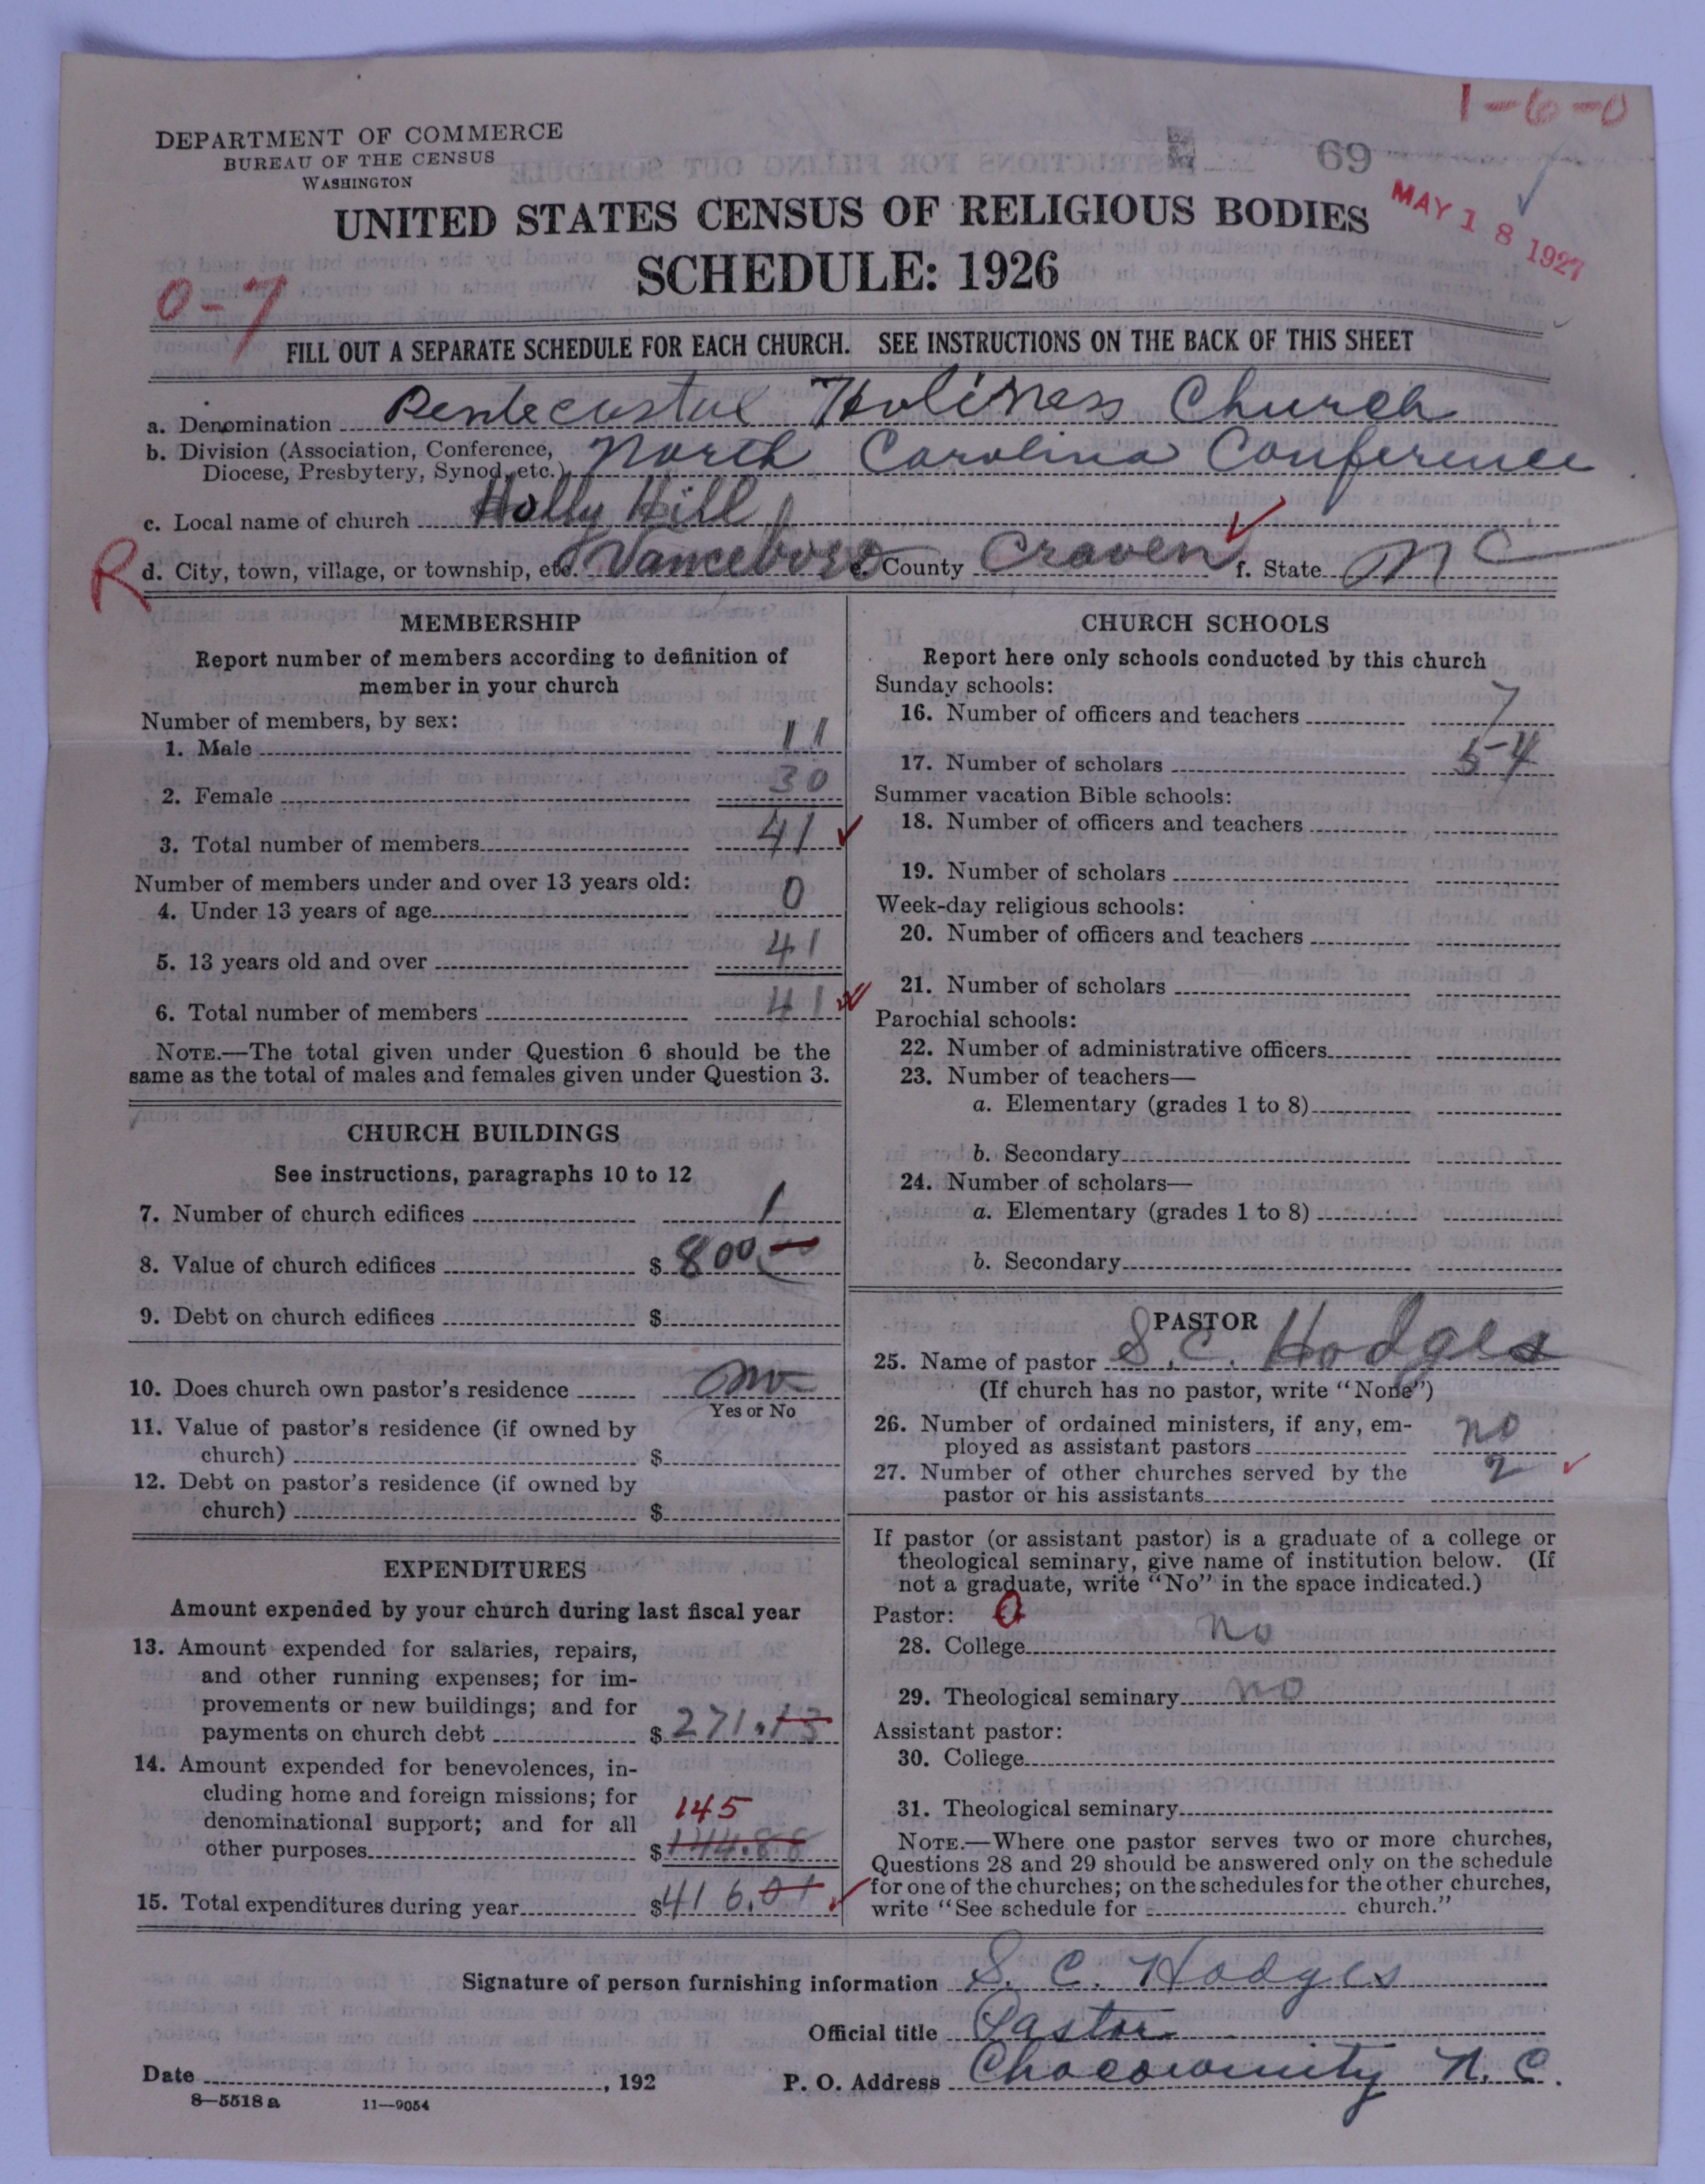 1-6-0
DEPARTMENT OF COMMERCE
BUREAU OF THE CENSUS
WASHINGTON
69
MAY 18 1927
UNITED STATES CENSUS OF RELIGIOUS BODIES
SCHEDULE: 1926
0-7
FILL OUT A SEPARATE SCHEDULE FOR EACH CHURCH. SEE INSTRUCTIONS ON THE BACK OF THIS SHEET
a. Denomination Pentecostal Holiness Church
b. Division (Association, Conference,
Diocese, Presbytery, Synod, etc.) North Carolina Conference
c. Local name of church Holly Hill
R
d. City, town, village, or township, etc. Vanceboro e. County Craven f. State N C
MEMBERSHIP
Report number of members according to definition of
member in your church
Number of members, by sex:
1. Male 11
2. Female 30
3. Total number of members 41
Number of members under and over 13 years old:
4. Under 13 years of age 0
5. 13 years old and over 41
6. Total number of members 41
NOTE.—The total given under Question 6 should be the
same as the total of males and females given under Question 3.
CHURCH BUILDINGS
See instructions, paragraphs 10 to 12
7. Number of church edifices 1
8. Value of church edifices $ 800.00
9. Debt on church edifices $
10. Does church own pastor's residence no
Yes or No
11. Value of pastor's residence (if owned by
church) $
12. Debt on pastor's residence (if owned by
church) $
EXPENDITURES
Amount expended by your church during last fiscal year
13. Amount expended for salaries, repairs,
and other running expenses; for im-
provements or new buildings; and for
payments on church debt $ 271.13
14. Amount expended for benevolences, in-
cluding home and foreign missions; for
denominational support; and for all
145
other purposes $ 144.88
15. Total expenditures during year $ 416.01
CHURCH SCHOOLS
Report here only schools conducted by this church
Sunday schools:
16. Number of officers and teachers 7
17. Number of scholars 54
Summer vacation Bible schools:
18. Number of officers and teachers
19. Number of scholars
Week-day religious schools:
20. Number of officers and teachers
21. Number of scholars
Parochial schools:
22. Number of administrative officers
23. Number of teachers—
a. Elementary (grades 1 to 8)
b. Secondary
24. Number of scholars—
a. Elementary (grades 1 to 8)
b. Secondary
PASTOR
25. Name of pastor S. C. Hodges
(If church has no pastor, write "None")
26. Number of ordained ministers, if any, em-
ployed as assistant pastors no
27. Number of other churches served by the
pastor or his assistants 2
If pastor (or assistant pastor) is a graduate of a college or
theological seminary, give name of institution below. (If
not a graduate, write "No" in the space indicated.)
Pastor: 0
28. College no
29. Theological seminary no
Assistant pastor:
30. College
31. Theological seminary
NOTE.—Where one pastor serves two or more churches,
Questions 28 and 29 should be answered only on the schedule
for one of the churches; on the schedules for the other churches,
write "See schedule for church."
Signature of person furnishing information S. C. Hodges
Official title Pastor
Date , 192 P. O. Address Chocowinity N. C.
8—5518a 11—9054